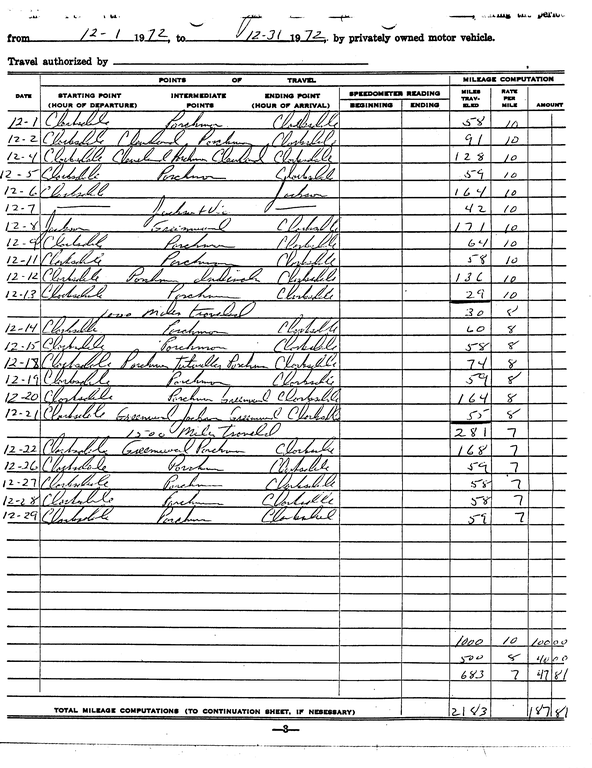 from 12-1 1972, to 12-31 1972, by privately owned motor vehicle.
Travel authorized by
POINTS OF TRAVEL MILEAGE COMPUTATION
DATE STARTING POINT (HOUR OF DEPARTURE) INTERMEDIATE POINTS ENDING POINT (HOUR OF ARRIVAL) SPEEDOMETER READING BEGINNING ENDING MILES TRAV- ELED RATE PER MILE AMOUNT
12-1 Clarksdale Parchman Clarksdale 58 10
12-2 Clarksdale Cleveland Parchman Clarksdale 91 10
12-4 Clarksdale Cleveland Parchman Cleveland Clarksdale 128 10
12-5 Clarksdale Parchman Clarksdale 59 10
12-6 Clarksdale Jackson 164 10
12-7 Jackson + Vic 42 10
12-8 Jackson Greenwood Clarksdale 171 10
12-9 Clarksdale Parchman Clarksdale 64 10
12-11 Clarksdale Parchman Clarksdale 58 10
12-12 Clarksdale Parchman Indianola Clarksdale 136 10
12-13 Clarksdale Parchman Clarksdale 29 10
1000 Miles traveled 30 8
12-14 Clarksdale Parchman Clarksdale 60 8
12-15 Clarksdale Parchman Clarksdale 58 8
12-18 Clarksdale Parchman Tutwiler Parchman Clarksdale 74 8
12-19 Clarksdale Parchman Clarksdale 59 8
12-20 Clarksdale Parchman Greenwood Clarksdale 164 8
12-21 Clarksdale Greenwood Jackson Greenwood Clarksdale 55 8
1500 Miles Traveled 281 7
12-22 Clarksdale Greenwood Parchman Clarksdale 168 7
12-26 Clarksdale Parchman Clarksdale 59 7
12-27 Clarksdale Parchman Clarksdale 58 7
12-28 Clarksdale Parchman Clarksdale 58 7
12-29 Clarksdale Parchman Clarksdale 59 7
1000 10 100 00
500 8 40 00
683 7 47 81
TOTAL MILEAGE COMPUTATIONS (TO CONTINUATION SHEET, IF NESESSARY) 2183 187 81
—3—